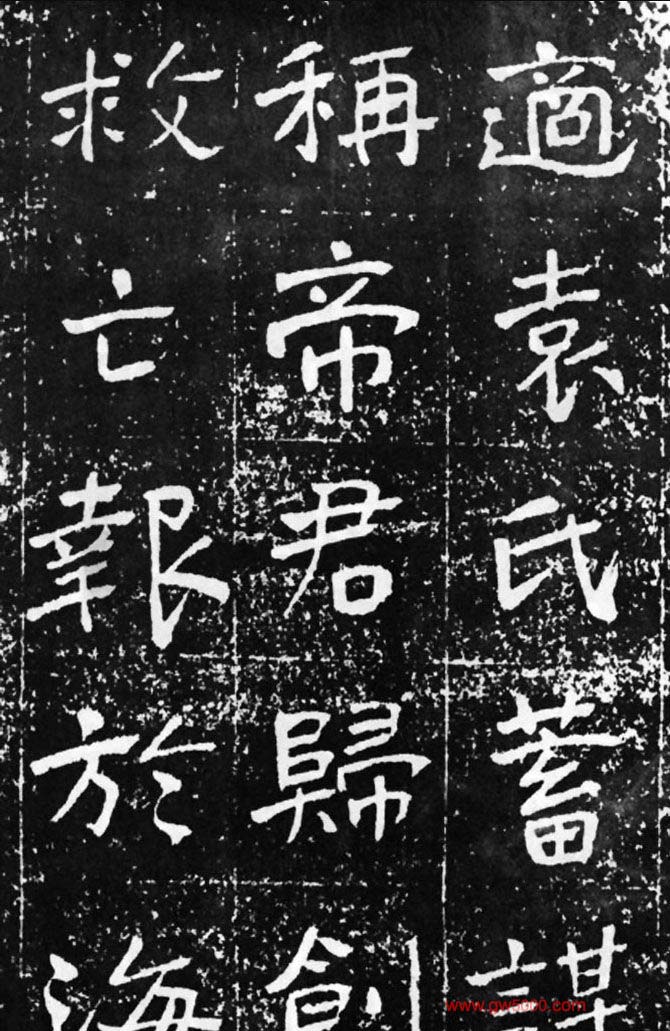 適袁氏蓄謀
稱帝君歸創
救亡報於海
www.gw5000.com